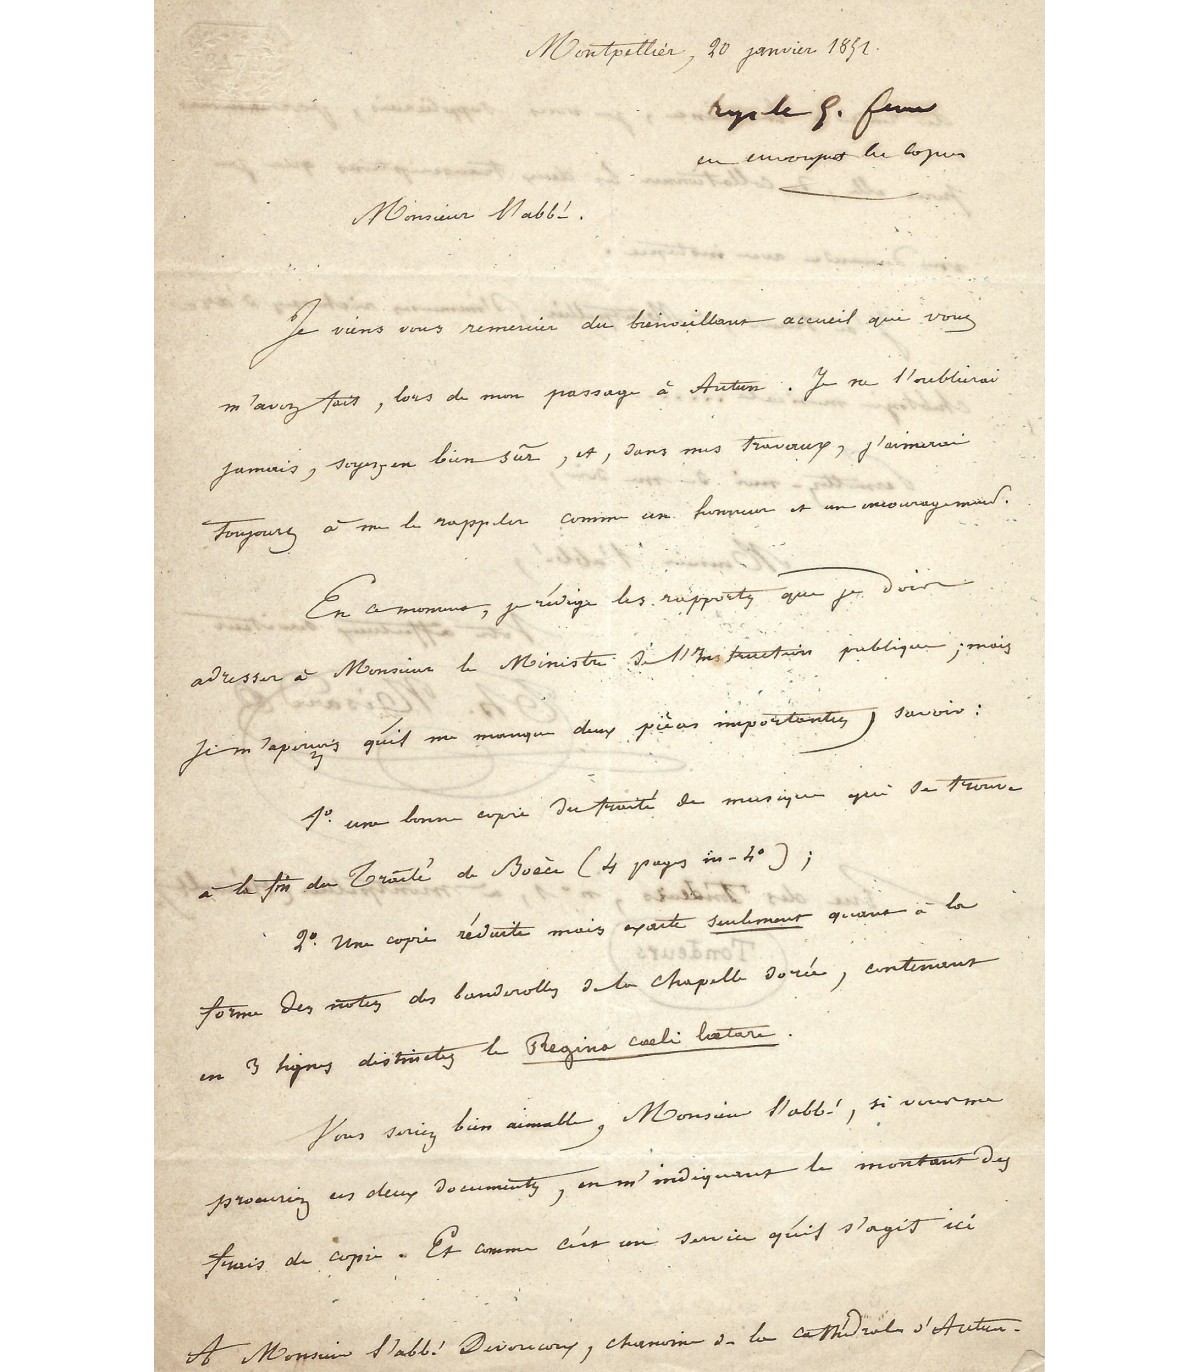 Montpellier, 20 janvier 1851.
en envoyant les copies
Monsieur l'abbé.
Je viens vous remercier du bienveillant accueil que vous
m'avez fait, lors de mon passage à Autun. Je ne l'oublierai
jamais, soyez-en bien sûr, et, dans mes travaux, j'aimerai
toujours à me le rappeler comme un honneur et un encouragement.
En ce moment, je rédige les rapports que je dois
adresser à Monsieur le Ministre de l'Instruction publique ; mais
je m'aperçois qu'il me manque deux pièces importantes, savoir :
1º. une bonne copie du traité de musique qui se trouve
à la fin du Traité de Boèce (4 pages in-4º) ;
2º. Une copie réduite mais exacte seulement quant à la
forme des notes des banderolles de la chapelle dorée, contenant
en 3 lignes distinctes le Regina cœli lætare.
Vous seriez bien aimable, Monsieur l'abbé, si vous me
procuriez ces deux documents, en m'indiquant le montant des
frais de copie. Et comme c'est un service qu'il s'agit ici
A Monsieur l'abbé Devoucoux, chanoine de la cathédrale d'Autun.
Tondeurs